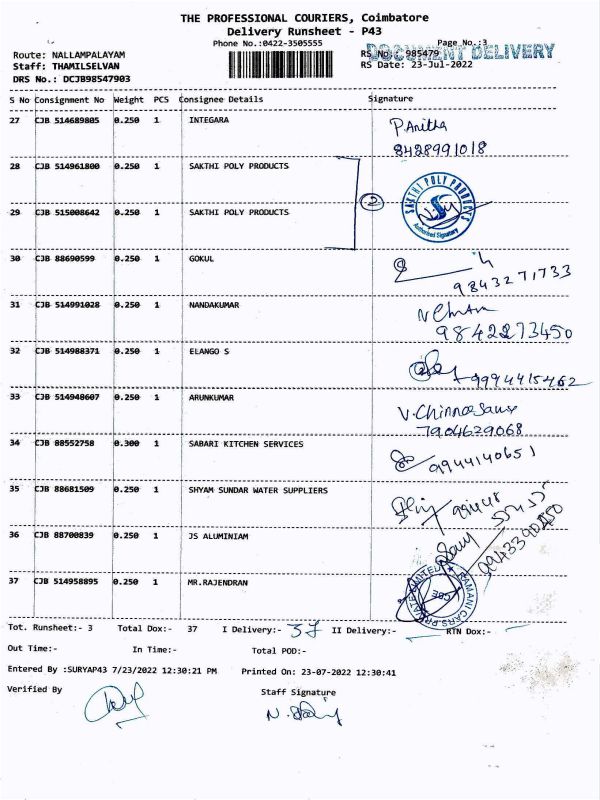 THE PROFESSIONAL COURIERS, Coimbatore
Delivery Runsheet - P43
Phone No.:0422-3505555 Page No.:3
Route: NALLAMPALAYAM RS No. 985479
DOCUMENT DELIVERY
Staff: THAMILSELVAN RS Date: 23-Jul-2022
DRS No.: DCJB98547903
S No Consignment No Weight PCS Consignee Details Signature
27 CJB 514689805 0.250 1 INTEGARA P.Anitha
8428991018
28 CJB 514961800 0.250 1 SAKTHI POLY PRODUCTS
2
SAKTHI POLY PRODUCTS
Authorised Signatory
29 CJB 515008642 0.250 1 SAKTHI POLY PRODUCTS
30 CJB 88690599 0.250 1 GOKUL
9843271733
31 CJB 514991028 0.250 1 NANDAKUMAR
9842273450
32 CJB 514988371 0.250 1 ELANGO S
9994415462
33 CJB 514940607 0.250 1 ARUNKUMAR
7904629068
34 CJB 88552758 0.300 1 SABARI KITCHEN SERVICES
9944140651
35 CJB 88681509 0.250 1 SHYAM SUNDAR WATER SUPPLIERS
36 CJB 88700839 0.250 1 JS ALUMINIAM
37 CJB 514958895 0.250 1 MR.RAJENDRAN
RAMANI CARS PRIVATE LIMITED
CBE
Tot. Runsheet:- 3 Total Dox:- 37 I Delivery:- 37 II Delivery:- RTN Dox:-
Out Time:- In Time:- Total POD:-
Entered By :SURYAP43 7/23/2022 12:30:21 PM Printed On: 23-07-2022 12:30:41
Verified By Staff Signature